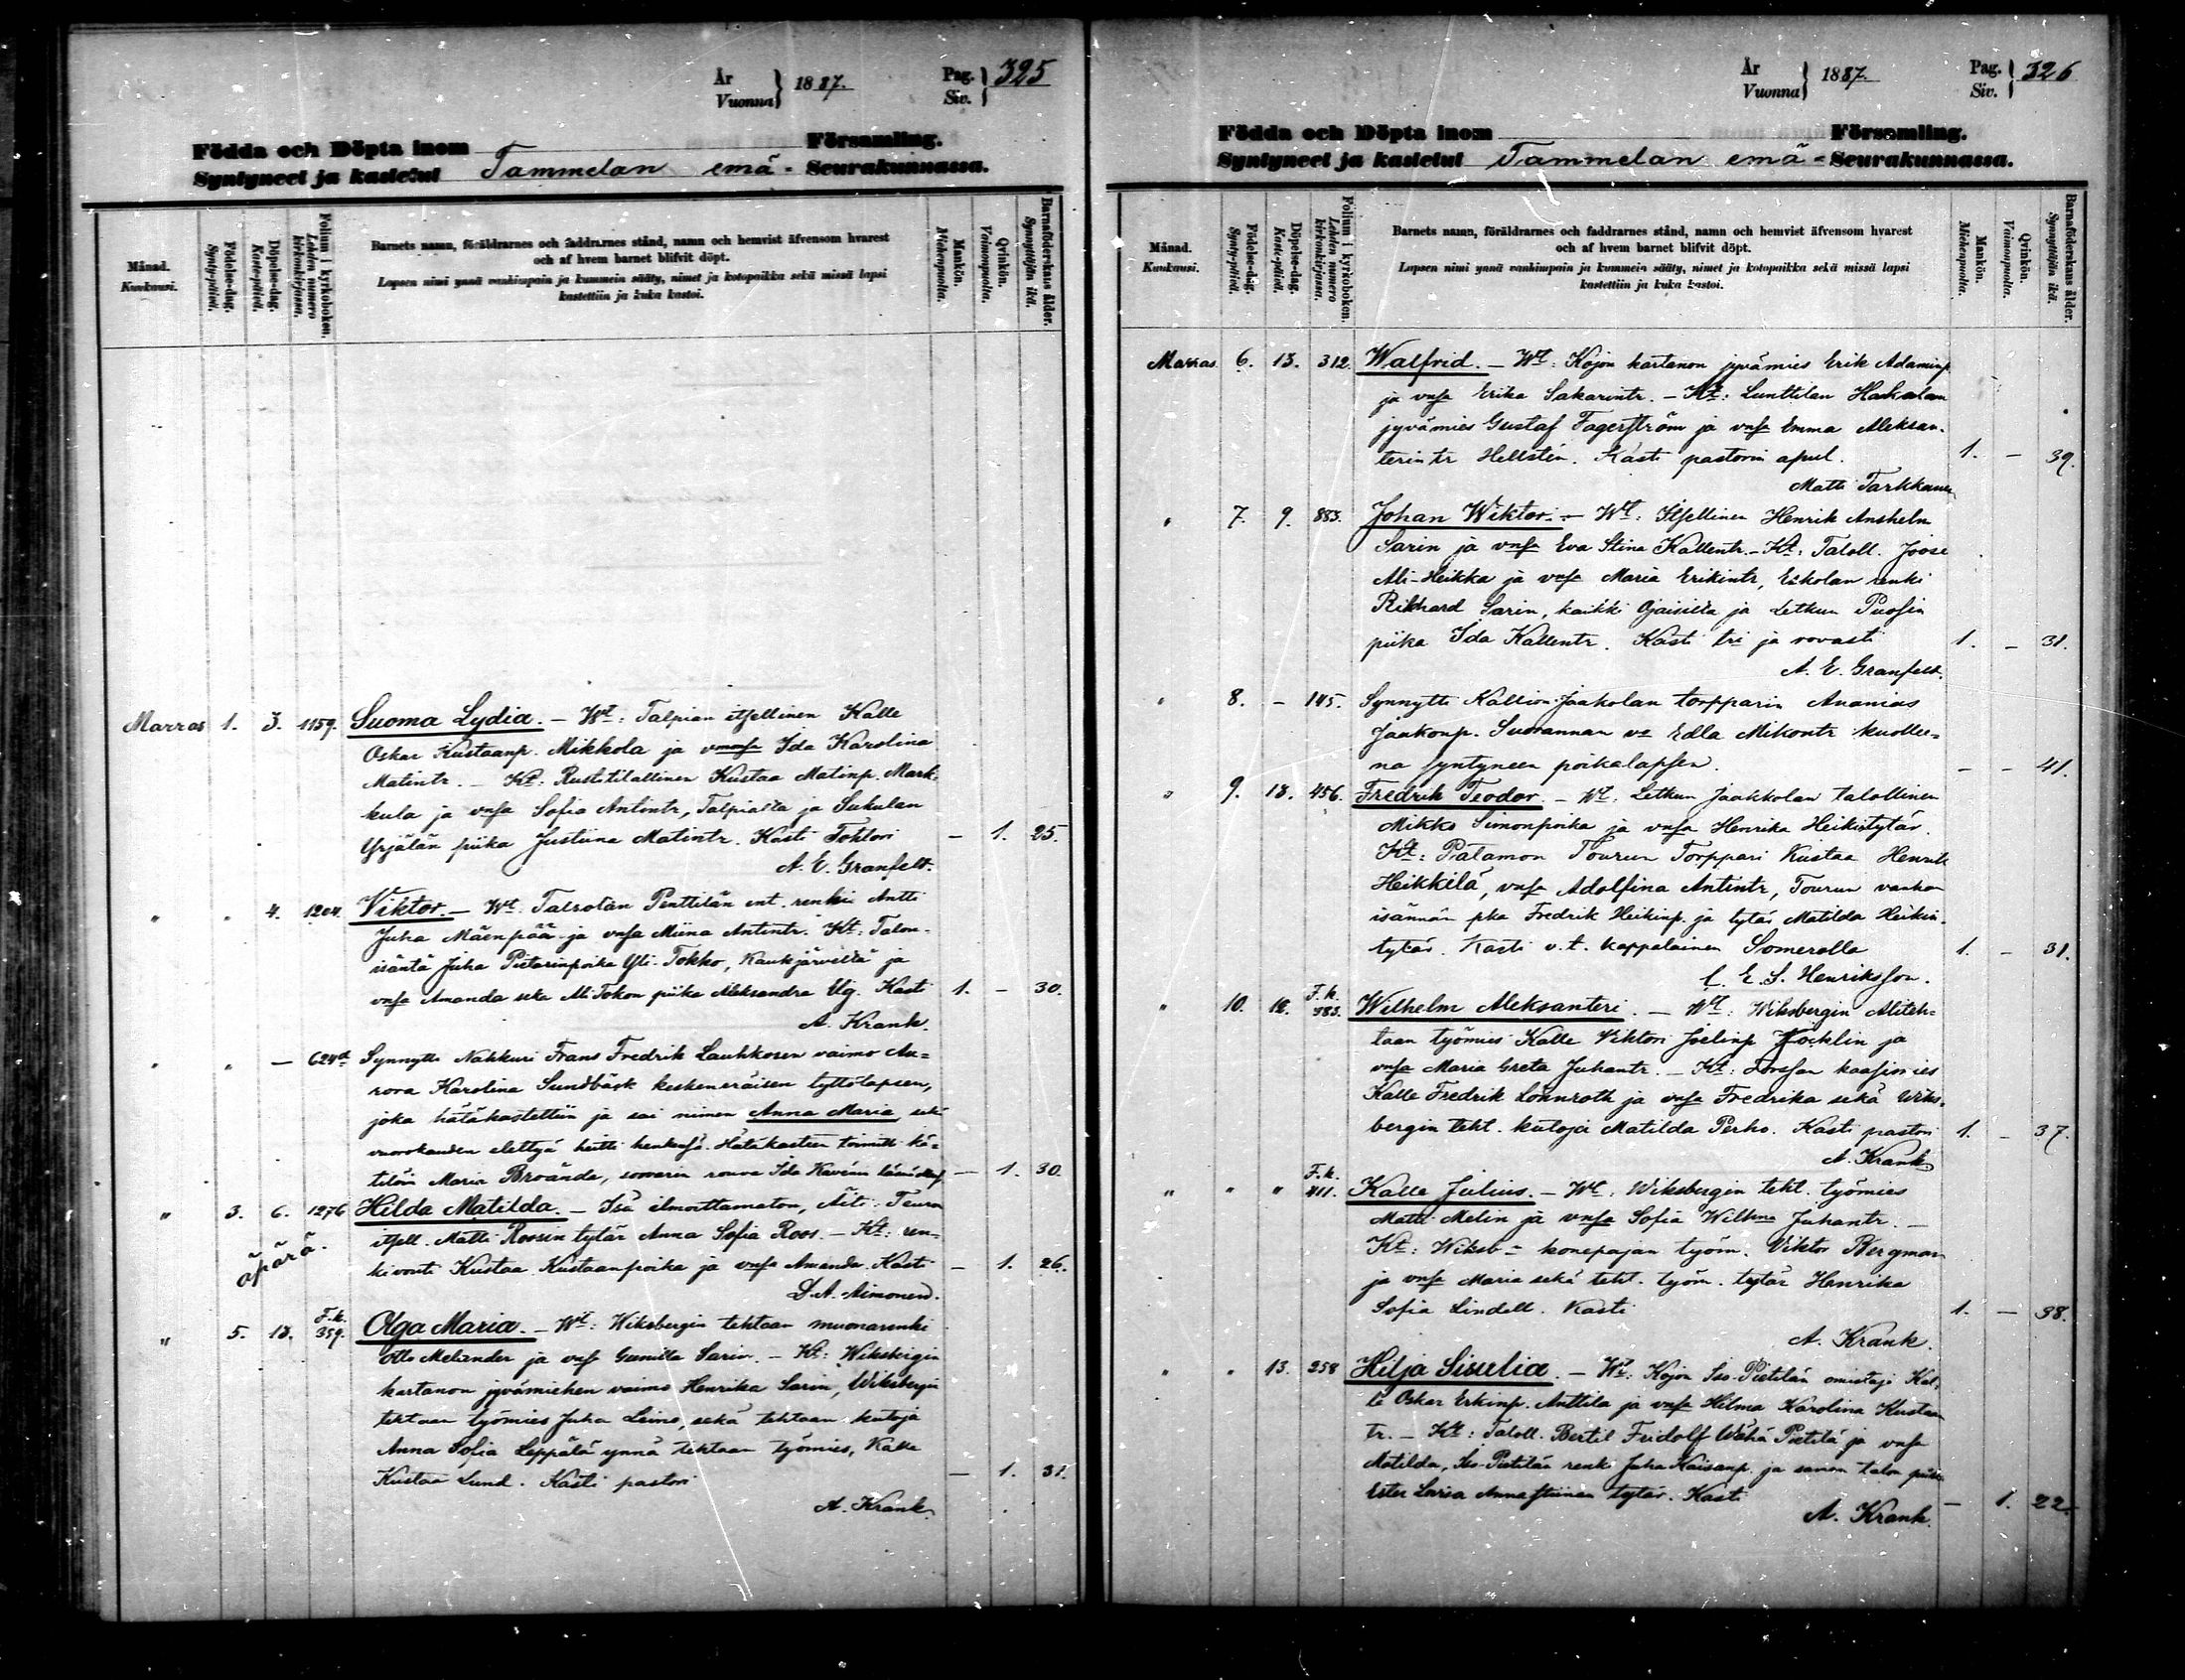 År
Vuonna } 1887.
Pag.
Siv. } 325
Födda och Döpta inom Församling.
Syntyneet ja kastetut Tammelan emä- Seurakunnassa.
Månad.
Kuukausi.
Födelse-dag.
Synty-päivä.
Döpelse-dag.
Kaste-päivä.
Folium i kyrkoboken.
Lehden numero kirkonkirjassa.
Barnets namn, föräldrarnes och faddrarnes stånd, namn och hemvist äfvensom hvarest
och af hvem barnet blifvit döpt.
Lapsen nimi ynnä vanhimpain ja kummein sääty, nimet ja kotopaikka sekä missä lapsi
kastettiin ja kuka kastoi.
Mankön.
Miehenpuolta.
Qvinkön.
Vaimonpuolta.
Barnaföderskans ålder.
Synnyttäjän ikä.
Marras 1. 3. 1159. Suoma Lydia. – Wt: Talpian itsellinen Kalle
Oskar Kustaanp. Mikkola ja vmonsa Ida Karolina
Matintr. – Kt: Rustitilallinen Kustaa Matinp. Mark-
kula ja vnsa Sofia Antintr, Talpialta ja Sukulan
Yrjälän piika Justiina Matintr. Kasti Tohtori – 1. 25.
A. E. Granfelt.
" " 4. 1204. Viktor. – Wt: Talsolan Penttilän ent. renki Antti
Juha Mäenpää ja vnsa Miina Antintr. Kt: Talon-
isäntä Juha Pietarinpoika Yli-Tokko, Kaukjärveltä ja
vnsa Amanda seka Ali Tokon piika Aleksandra Ulg. Kasti 1. – 30.
A. Krank.
" " – 624 Synnytti Nahkuri Frans Fredrik Lauhkosen vaimo Au-
rora Karolina Sundbäck keskeneräisen tyttölapsen,
joka hätäkastettiin ja sai nimen Anna Maria, sekä
vuorokauden elettyä heitti henkensä. Hätäkasteen toimitti kä-
tilön Maria Broända, rouva Ida – 1. 30.
" 3. 6. 1276 Hilda Matilda. – Isä ilmoittamaton, Äiti: Teuron
äpärä.
itsell. Matti Roosin tytär Anna Sofia Roos. – Kt: ren-
kivouti Kustaa Kustaanpoika ja vnsa Amanda. Kasti – 1. 26.
D. A. Aimonen.
" 5. 13. F.k. 359. Olga Maria. – Wt: Wiksbergin tehtaan muonarenki
Otto Melander ja vnsa Gunilla Sarin. – Kt: Wiksbergin
kartanon jyvämiehen vaimo Henrika Sarin, Wiksbergin
tehtaan työmies Juha Leino, sekä tehtaan kutoja
Anna Sofia Leppälä ynnä tehtaan työmies, Kalle
Kustaa Lund. Kasti pastori – 1. 31.
A. Krank.
År
Vuonna } 1887.
Pag.
Siv. } 326
Födda och Döpta inom Församling.
Syntyneet ja kastetut Tammelan emä- Seurakunnassa.
Månad.
Kuukausi.
Födelse-dag.
Synty-päivä.
Döpelse-dag.
Kaste-päivä.
Folium i kyrkoboken.
Lehden numero kirkonkirjassa.
Barnets namn, föräldrarnes och faddrarnes stånd, namn och hemvist äfvensom hvarest
och af hvem barnet blifvit döpt.
Lapsen nimi ynnä vanhimpain ja kummein sääty, nimet ja kotopaikka sekä missä lapsi
kastettiin ja kuka kastoi.
Mankön.
Miehenpuolta.
Qvinkön.
Vaimonpuolta.
Barnaföderskans ålder.
Synnyttäjän ikä.
Marras 6. 13. 312. Walfrid. – Wt: Kojon kartanon jyvämies Erik Adaminp.
ja vnsa Erika Sakarintr. – Kt: Lunttilan Hakalan
jyvämies Gustaf Fagerström ja vnsa Emma Aleksan-
terintr Hellstén. Kasti pastorin apul. 1. – 39.
Matti Tarkkanen
" 7. 9. 883. Johan Wiktor. – Wt: Itsellinen Henrik Anshelm
Sarin ja vnsa Eva Stina Kallentr. – Kt: Taloll. Joose
Ali-Heikka ja vnsa Maria Erikintr, Eskolan renki
Rikhard Sarin, kaikki Ojaisilta ja Letkun Puosin
piika Ida Kallentr. Kasti tri ja rovasti 1. – 31.
A. E. Granfelt.
" 8. – 145. Synnytti Kallion Jaakolan torpparin Ananias
Jaakonp. Suorannan vo Edla Mikontr kuollee-
na syntyneen poikalapsen. – – 41.
" 9. 13. 456. Fredrik Teodor. – Wt: Letkun Jaakkolan talollinen
Mikko Simonpoika ja vnsa Henrika Heikintytär.
Kt: Patamon Tourun Torppari Kustaa Henrik
Heikkilä, vnsa Adolfina Antintr, Tourun vanhan
isännän pka Fredrik Heikinp. ja tytär Matilda Heikin-
tytär. Kasti v.t. kappalainen Somerolla 1. – 31.
C. E. S. Henriksson.
" 10. 12. F.k. 383. Wilhelm Aleksanteri. – Wt: Wiksbergin Aliteh-
taan työmies Kalle Viktor Joelinp Focklin ja
vnsa Maria Greta Juhantr. – Kt: Forssan kaasimies
Kalle Fredrik Lönnroth ja vnsa Fredrika sekä Wiks-
bergin teht. kutoja Matilda Perho. Kasti pastori 1. – 37.
A. Krank
" " " F.k. 411. Kalle Julius. – Wt: Wiksbergin teht. työmies
Matti Melin ja vnsa Sofia Wilhma Juhantr. –
Kt: Wiksb- konepajan työm. Viktor Bergman
ja vnsa Maria sekä teht. työm. tytär Henrika
Sofia Lindell. Kasti 1. – 38.
A. Krank.
" " 13. 258 Hilja Sisulia. – Wt: Kojon Iso-Pietilän omistaja Kal-
le Oskar Erkinp. Anttila ja vnsa Hilma Karolina Kustaan
tr. – Kt: Taloll. Bertil Fridolf Wähä Pietilä ja vnsa
Matilda, Iso-Pietilän renki Juha Kaisanp. ja saman talon piika
Ester Loviisa Annastiinan tytär. Kasti – 1. 22.
A. Krank.